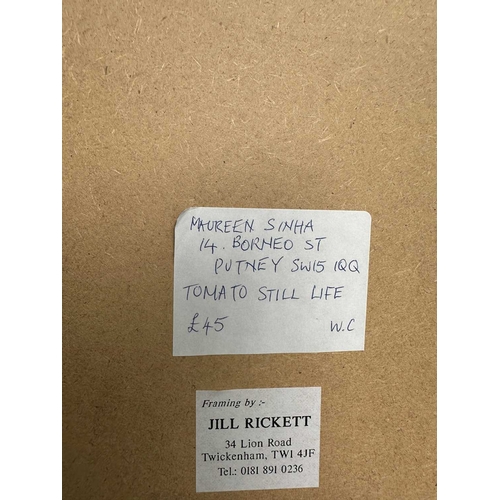 MAUREEN SINHA
14. BORNEO ST
PUTNEY SW15 1QQ
TOMATO STILL LIFE
£45 W.C
Framing by :-
JILL RICKETT
34 Lion Road
Twickenham, TW1 4JF
Tel.: 0181 891 0236